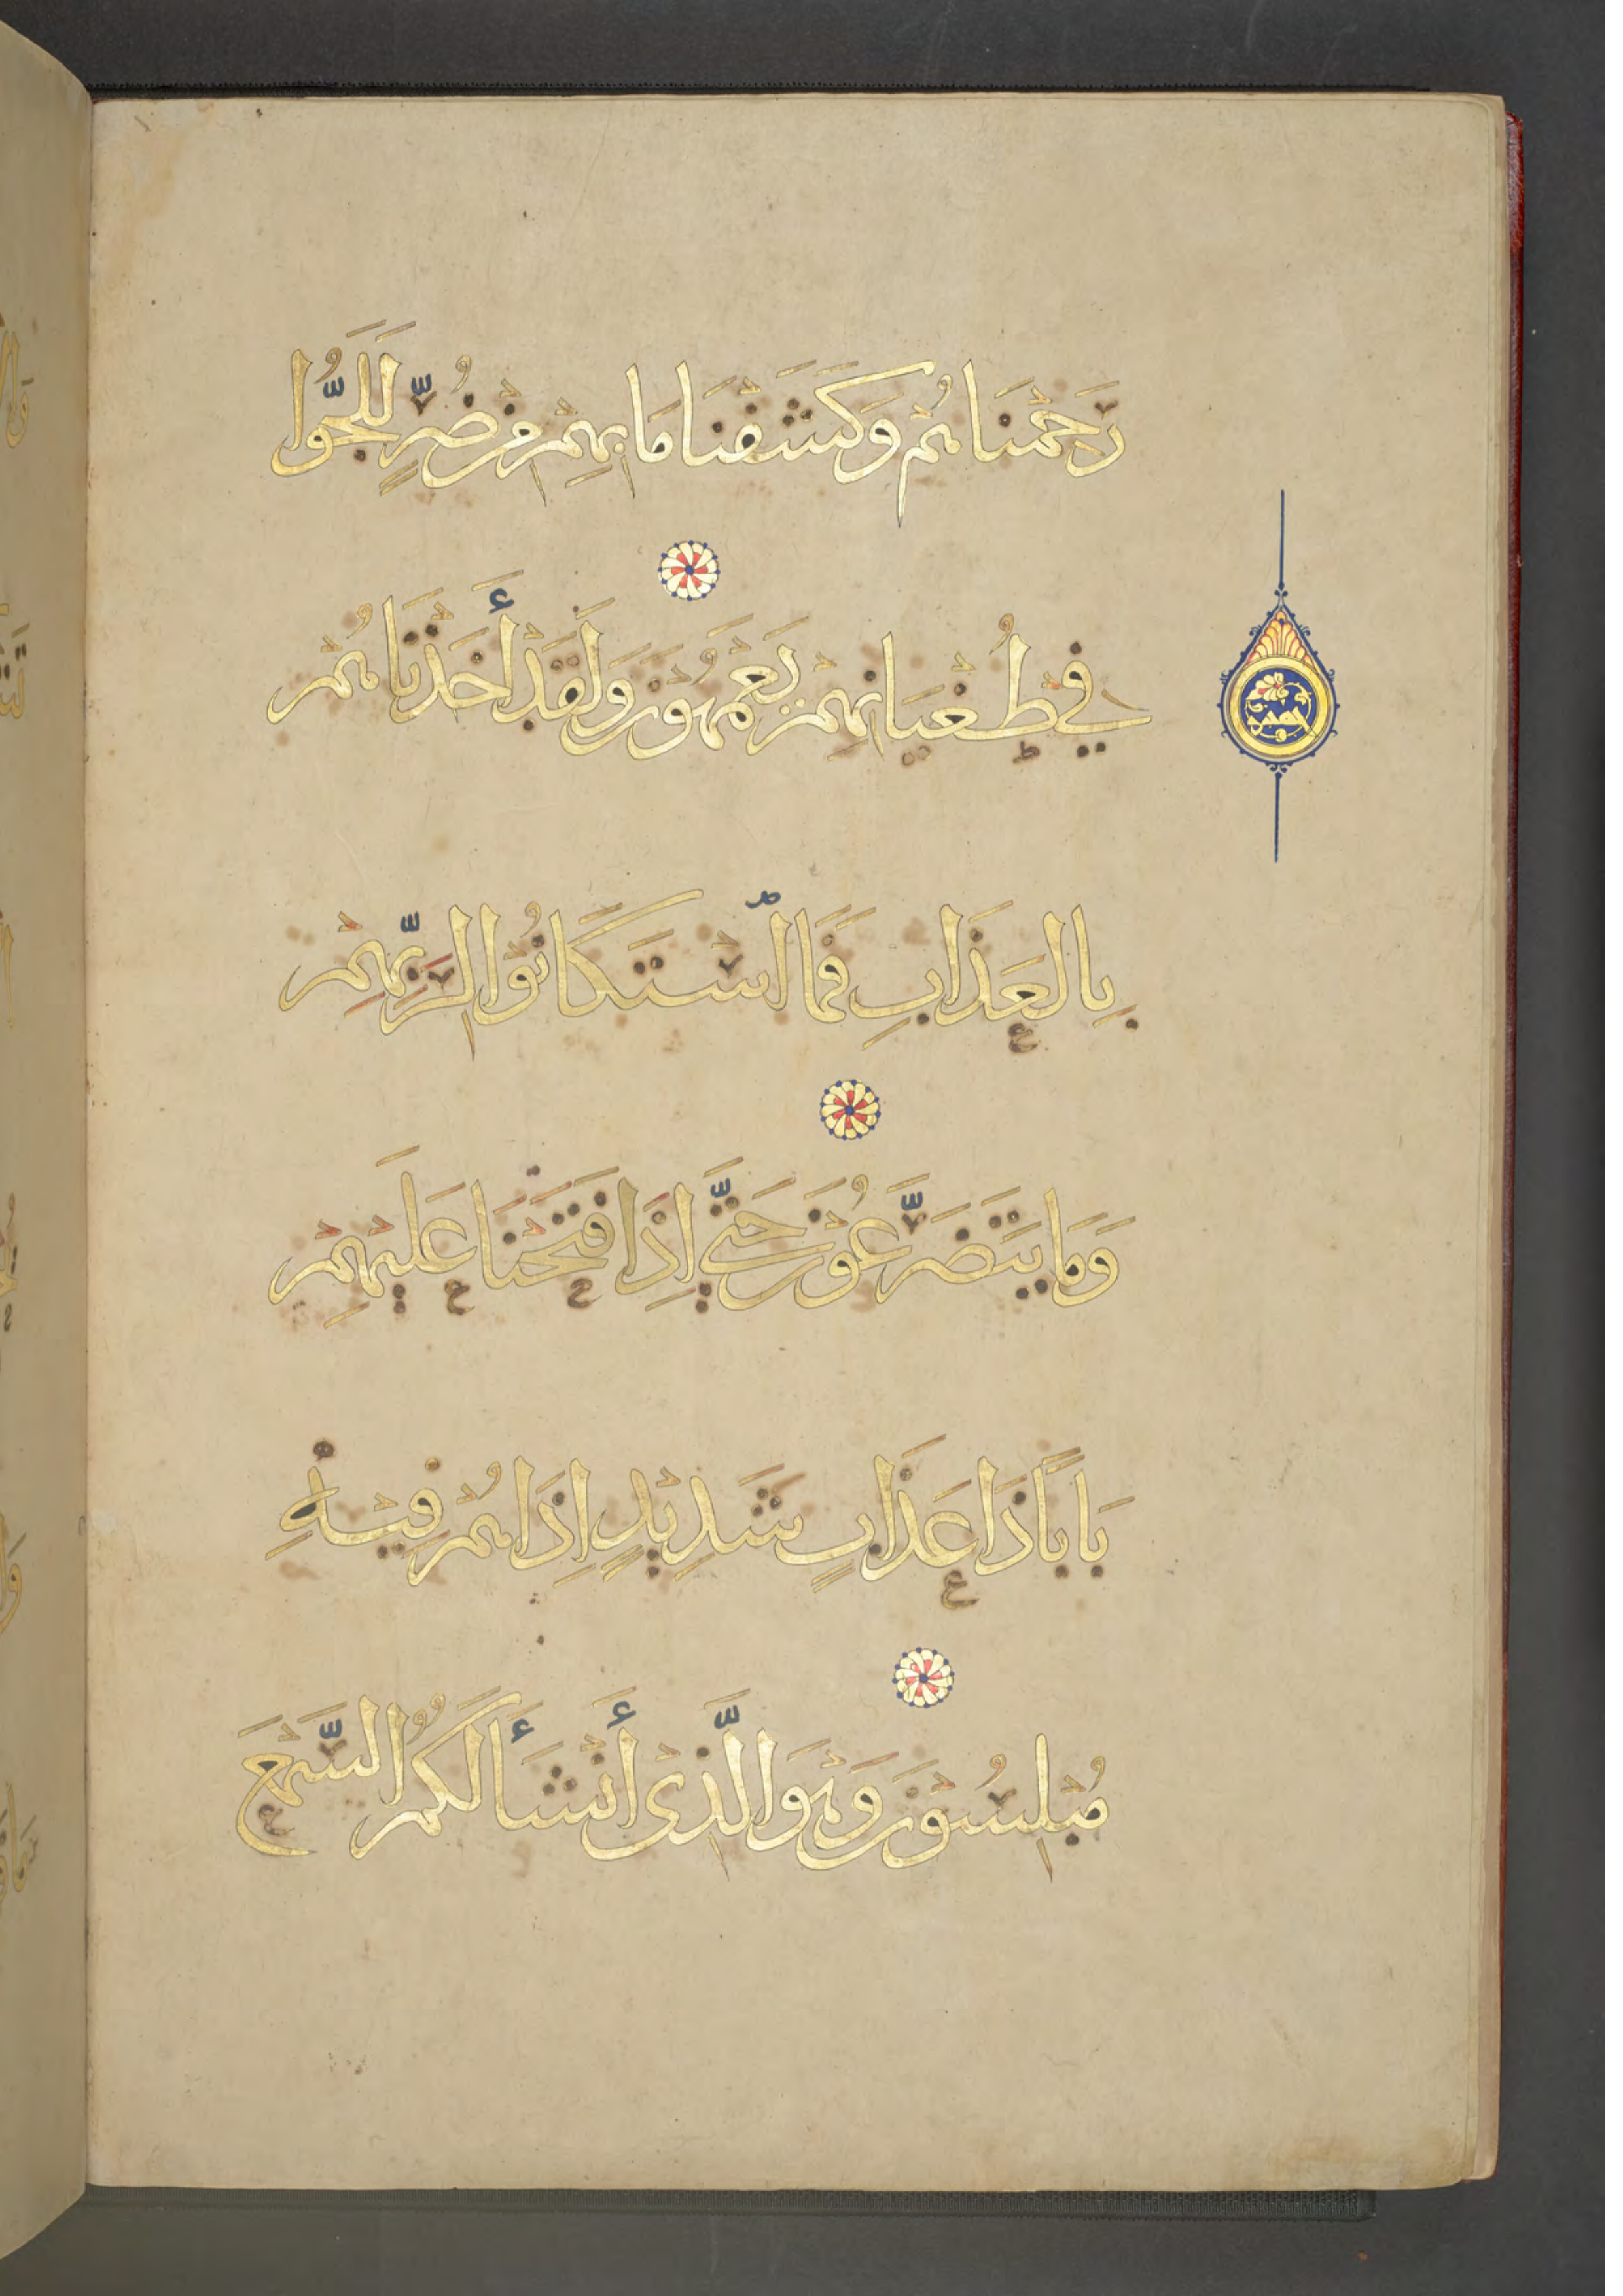 رَحِمْنَاهُمْ وَكَشَفْنَا مَا بِهِمْ مِنْ ضُرٍّ لَلَجُّوا
فِي طُغْيَانِهِمْ يَعْمَهُونَ وَلَقَدْ أَخَذْنَاهُمْ
بِالْعَذَابِ فَمَا اسْتَكَانُوا لِرَبِّهِمْ
وَمَا يَتَضَرَّعُونَ حَتَّى إِذَا فَتَحْنَا عَلَيْهِمْ
بَابًا ذَا عَذَابٍ شَدِيدٍ إِذَا هُمْ فِيهِ
مُبْلِسُونَ وَهُوَ الَّذِى أَنْشَأَ لَكُمُ السَّمْعَ